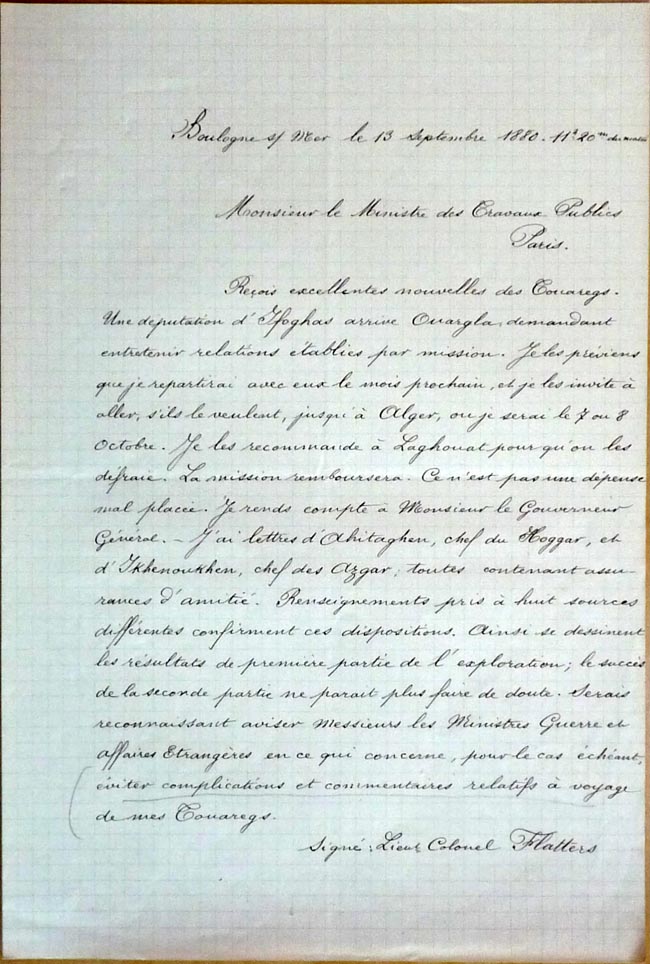 Boulogne s/ Mer le 13 Septembre 1880. 11h 20m du matin
Monsieur le Ministre des Travaux Publics
Paris.
Reçois excellentes nouvelles des Touaregs.
Une députation d'Ifoghas arrive Ouargla, demandant
entretenir relations établies par mission. Je les préviens
que je repartirai avec eux le mois prochain, et je les invite à
aller, s'ils le veulent, jusqu'à Alger, ou je serai le 7 ou 8
Octobre. Je les recommande à Laghouat pour qu'on les
défraie. La mission remboursera. Ce n'est pas une dépense
mal placée. Je rends compte à Monsieur le Gouverneur
Général. – J'ai lettres d'Ahitaghen, chef du Hoggar, et
d'Ikhenoukhen, chef des Azgar; toutes contenant assu-
rances d'amitié. Renseignements pris à huit sources
différentes confirment ces dispositions. Ainsi se dessinent
les résultats de première partie de l'exploration; le succès
de la seconde partie ne parait plus faire de doute. Serais
reconnaissant aviser Messieurs les Ministres Guerre et
Affaires Etrangères en ce qui concerne, pour le cas échéant,
éviter complications et commentaires relatifs à voyage
de mes Touaregs.
Signé: Lieut Colonel Flatters